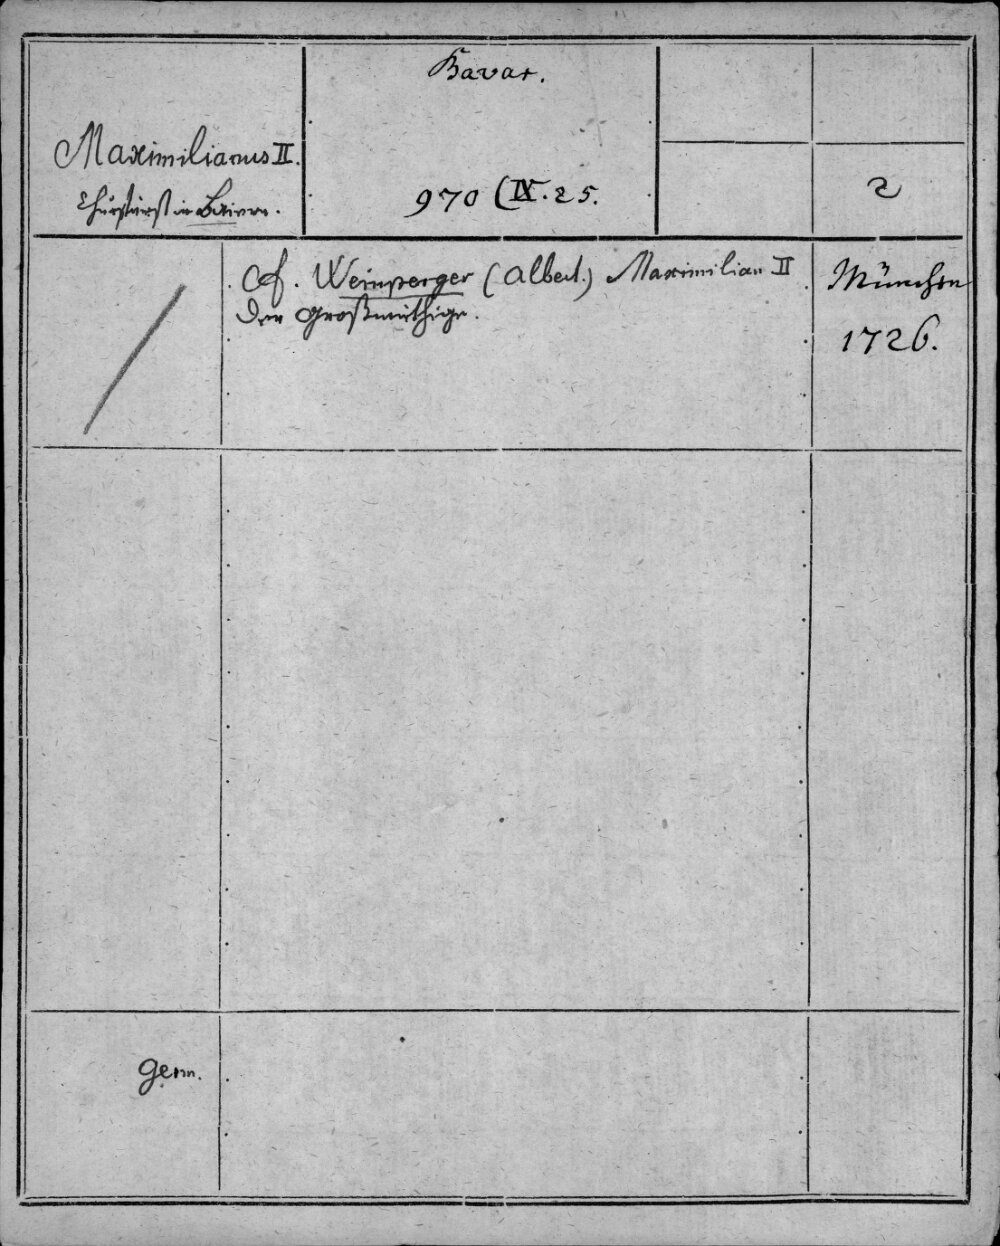 Bavar.
Maximilianus II.
Churfürst in Baiern.
970 (IX. 25.
2
cf. Weinperger (Albert.) Maximilian II
der Großmüthige.
München
1726.
germ.